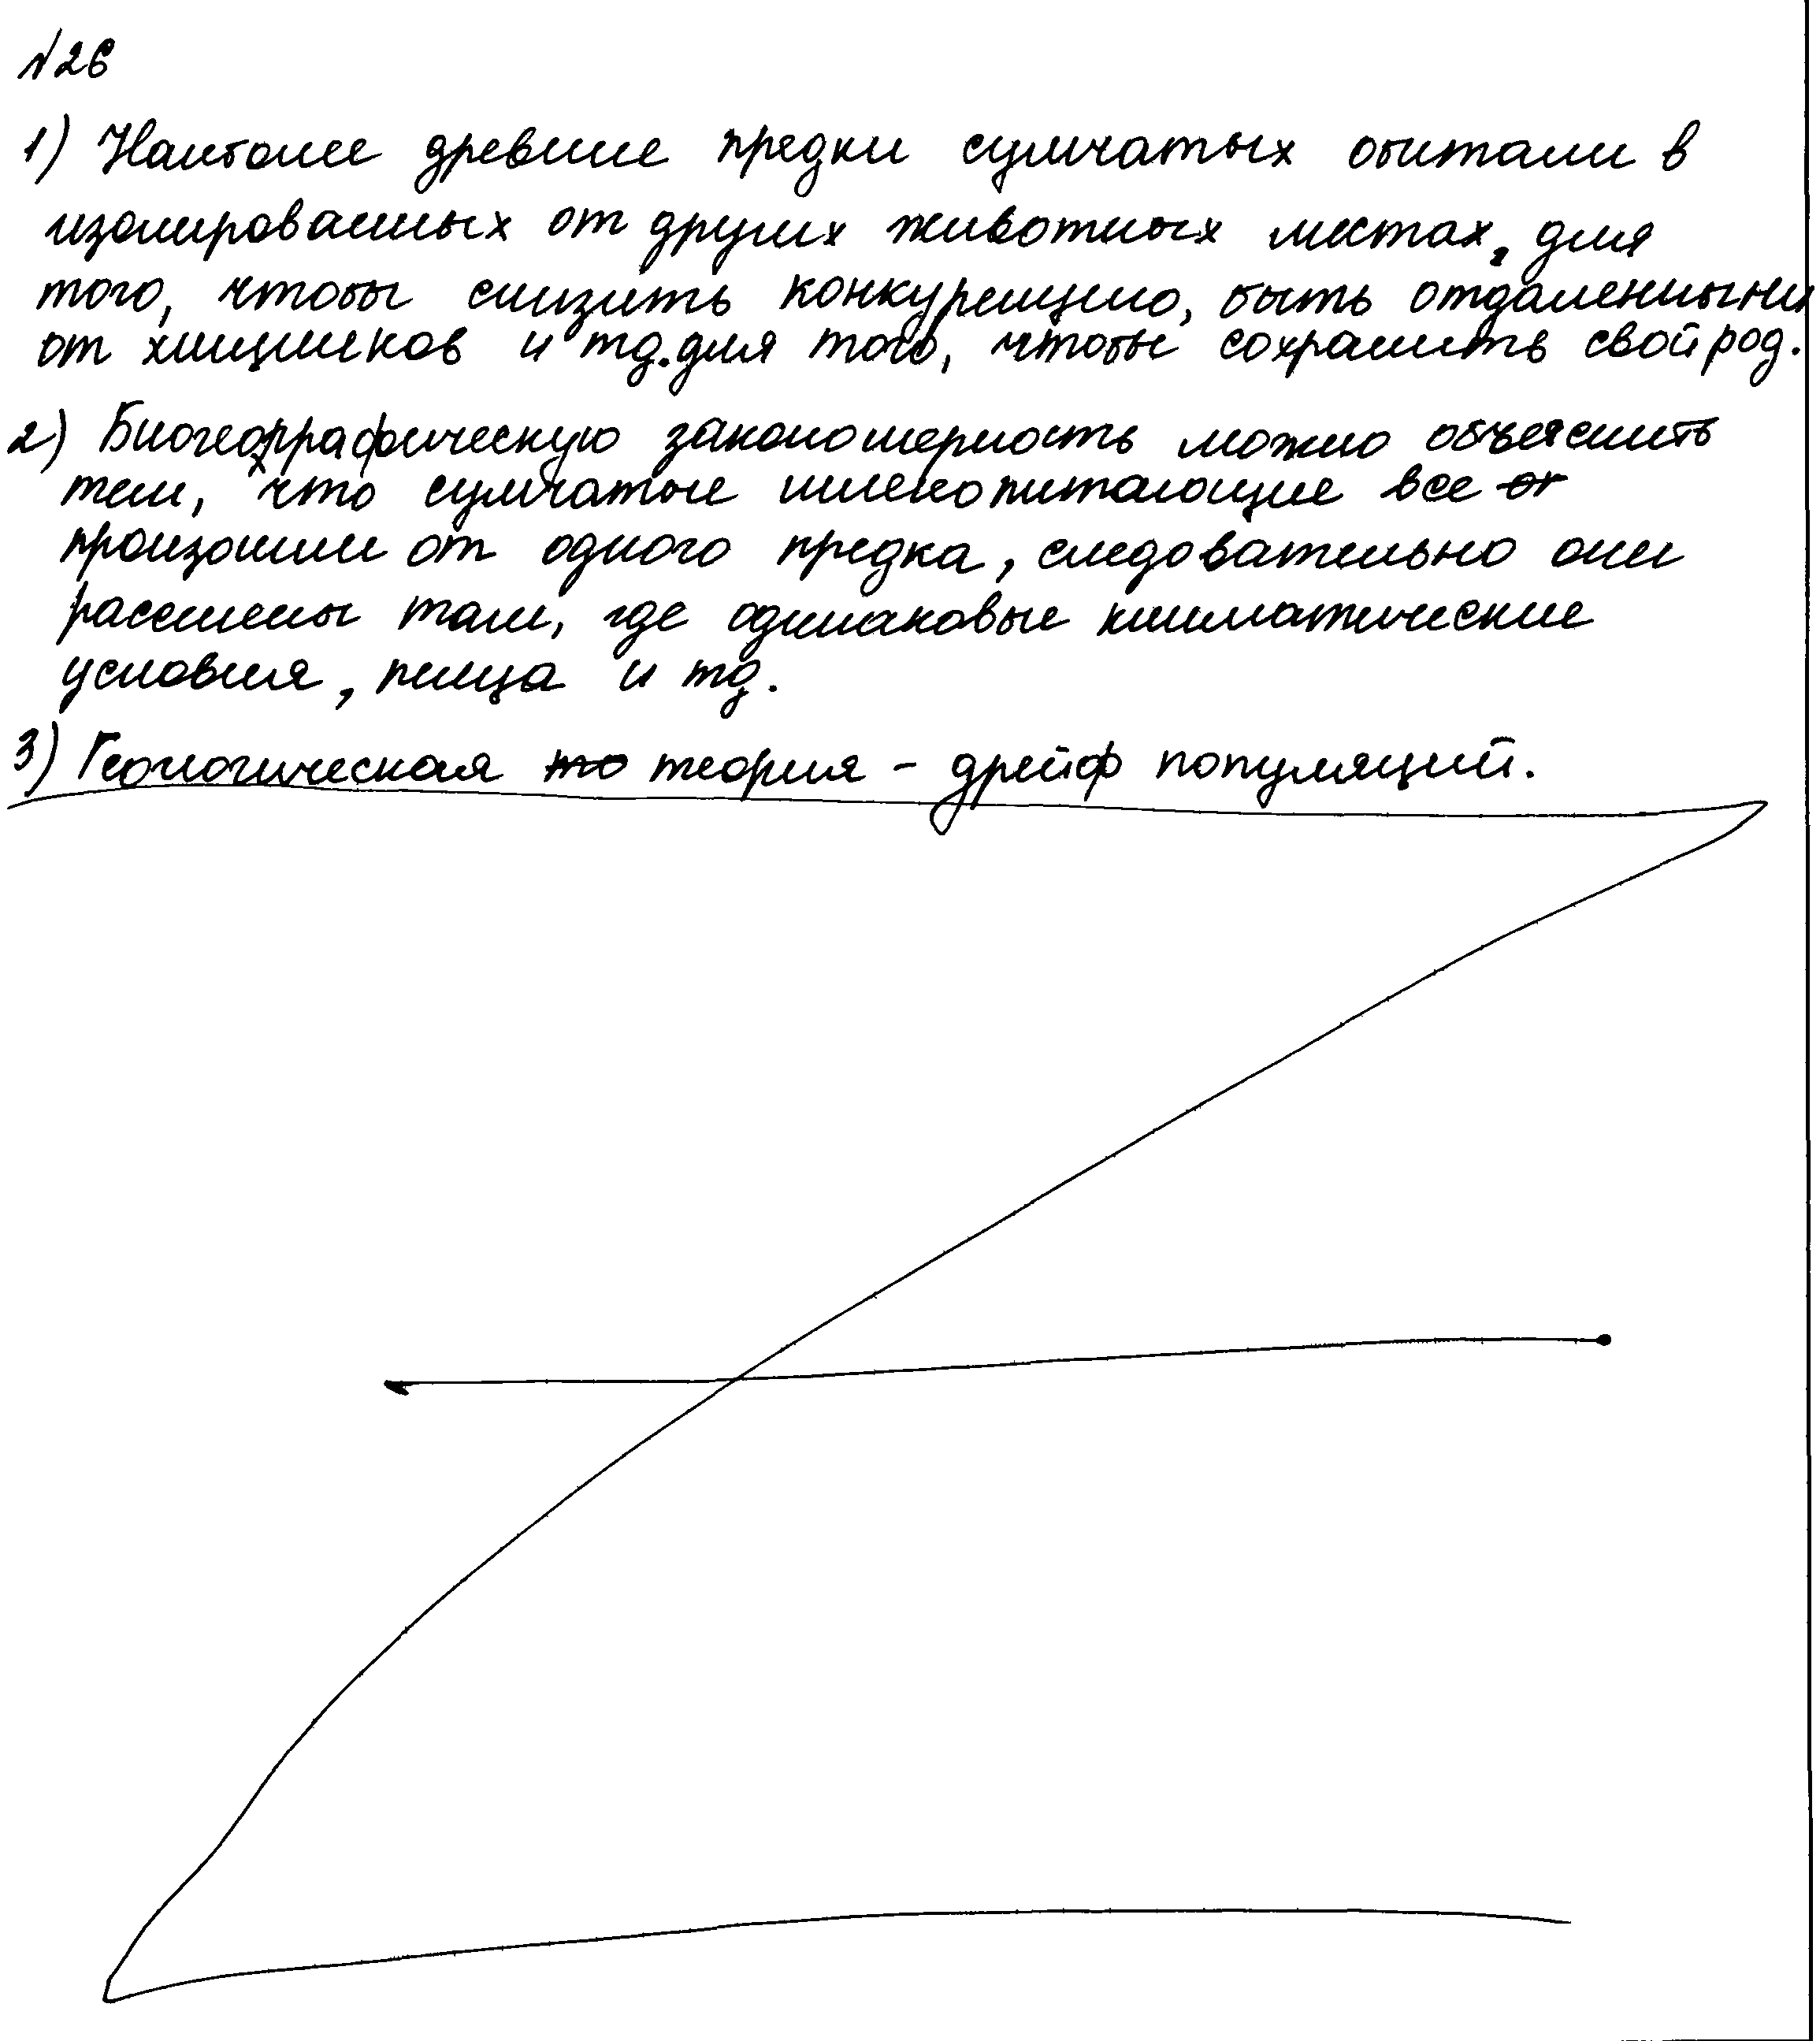 №26
1) Наиболее древние предки сумчатых обитали в
изолированных от других животных местах, для
того, чтобы снизить конкуренцию, быть отдаленными
от хищников и тд. для того, чтобы сохранить свой род.
2) Биогеографическую закономерность можно объяснить
тем, что сумчатые млекопитающие все от
произошли от одного предка, следовательно они
расселены там, где одинаковые климатические
условия, пища и тд.
3) Геологическая то теория - дрейф популяций.